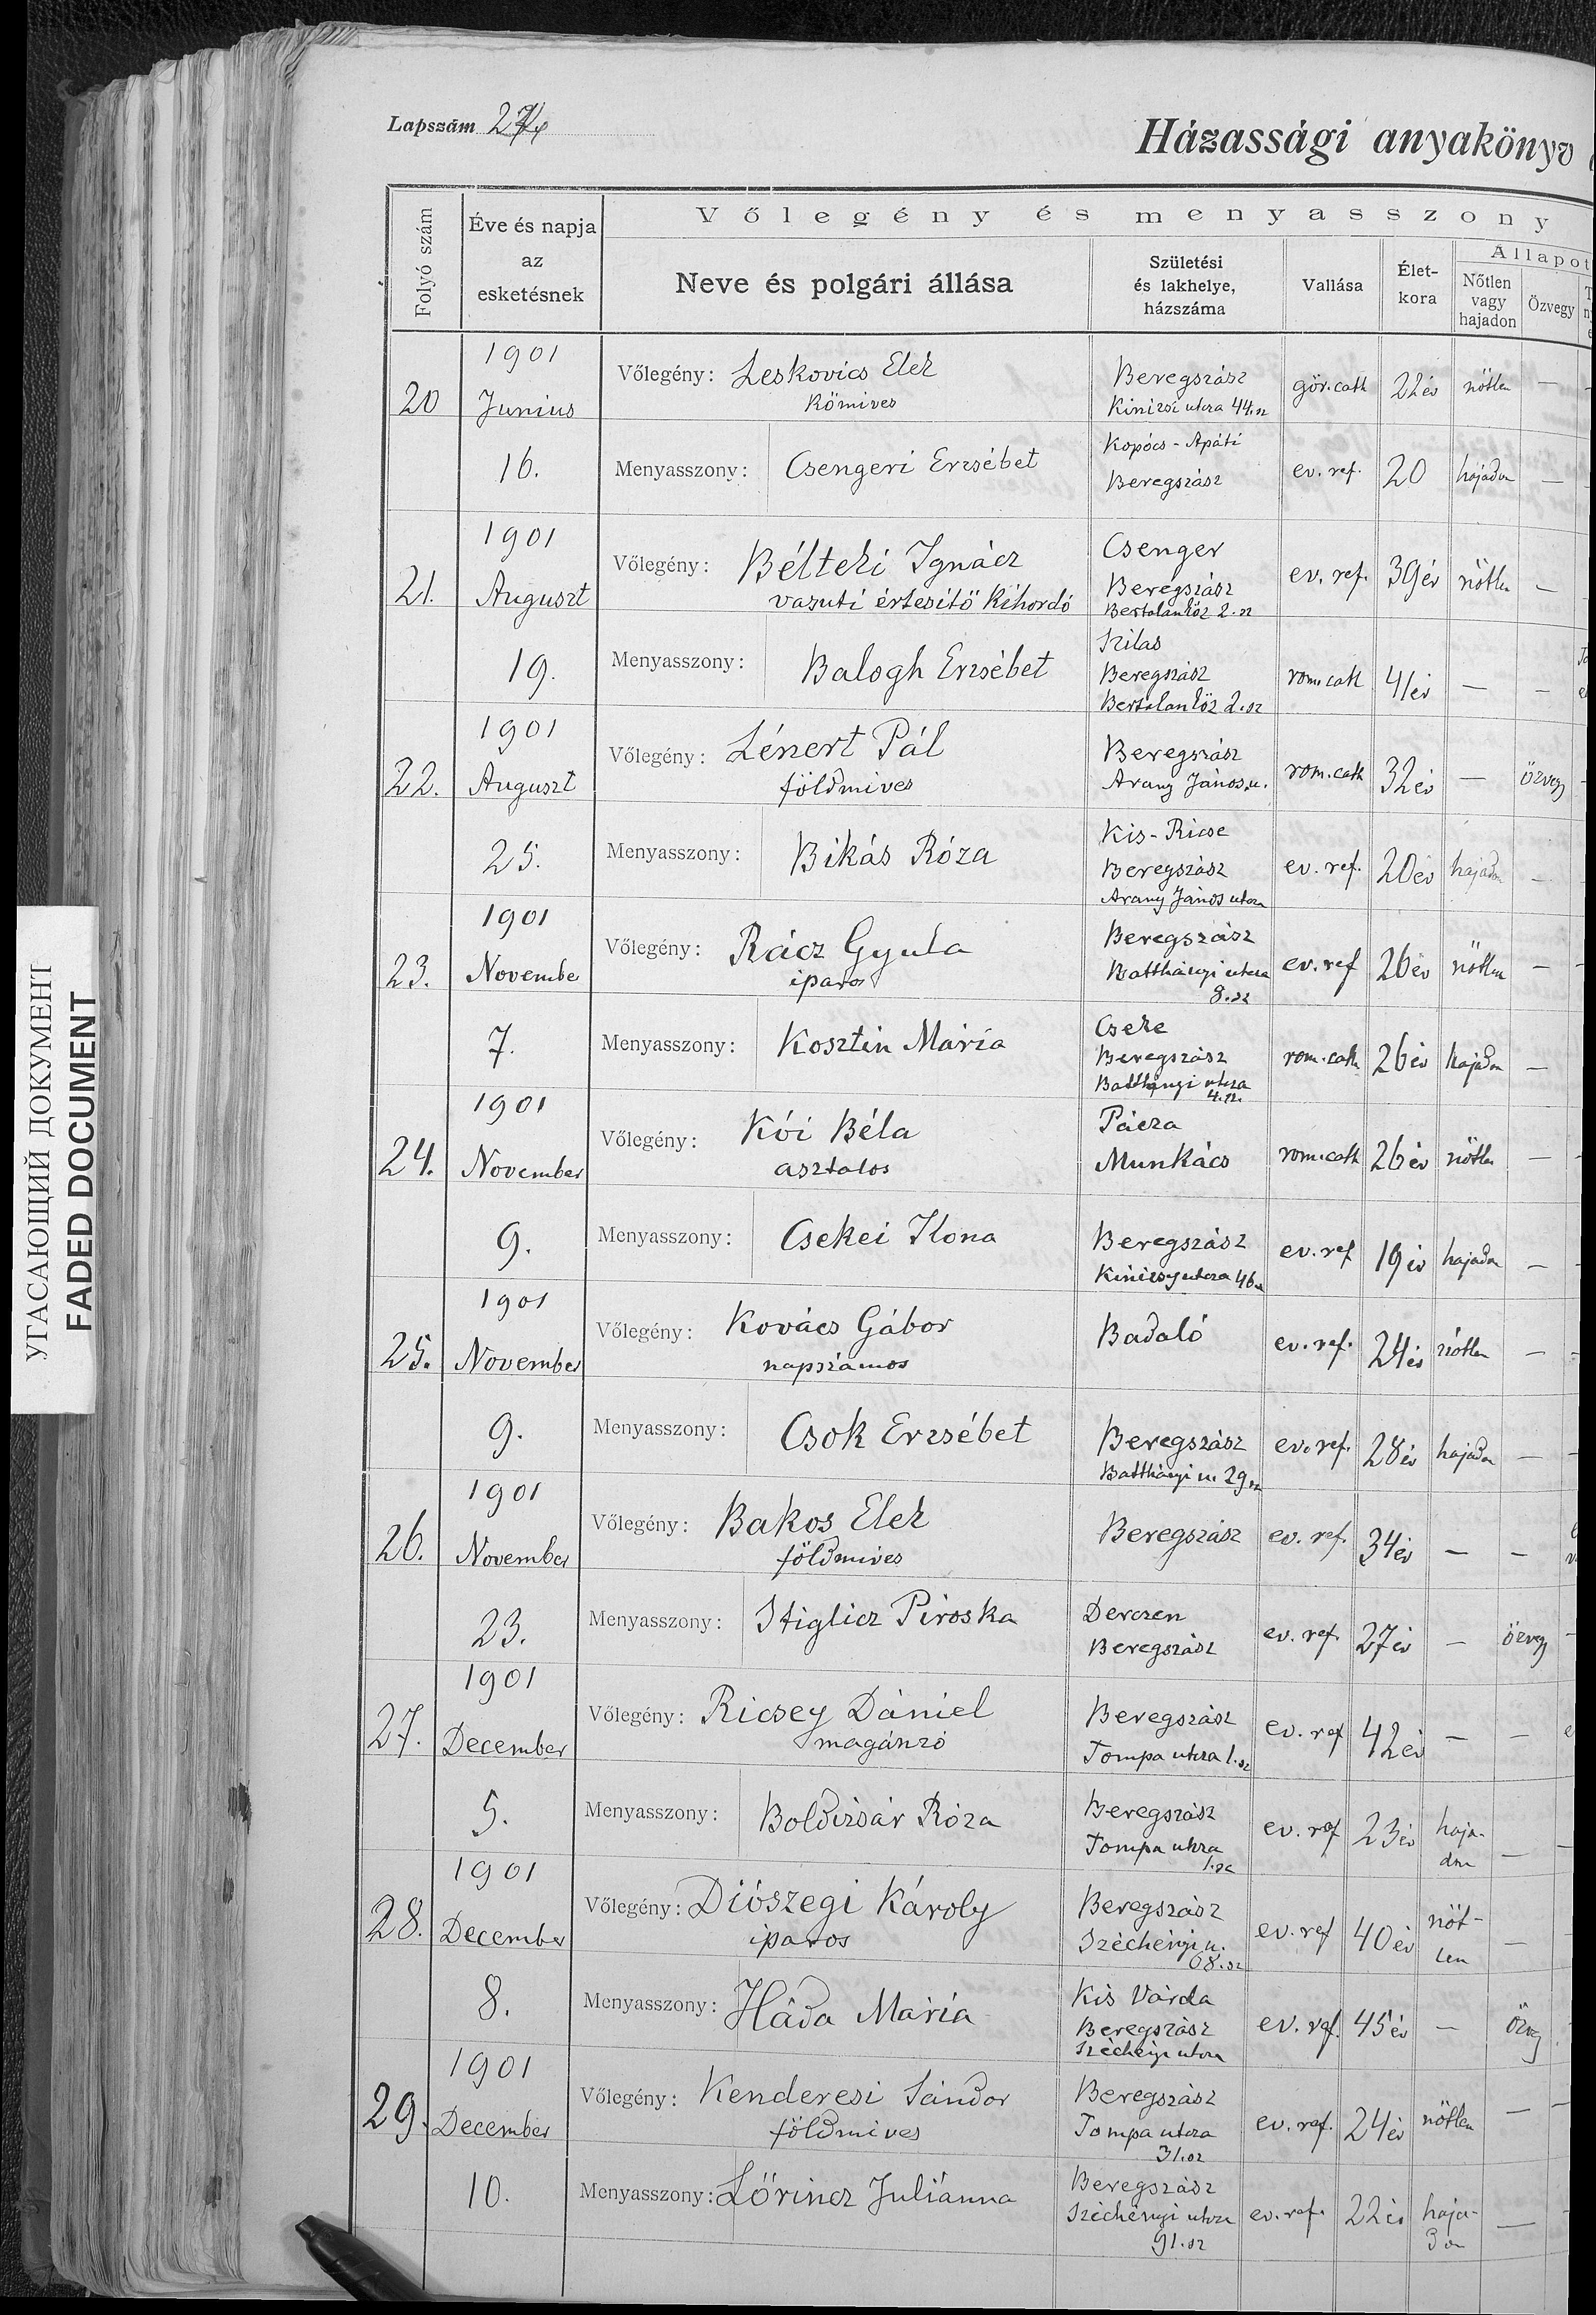 Lapszám
Házassági anyakönyv
Folyó szám
Éve és napja
az
esketésnek
Vőlegény és menyasszony
Neve és polgári állása
Születési
és lakhelye,
házszáma
Vallása
Élet-
kora
Állapot
Nőtlen
vagy
hajadon
Özvegy
20
1901
Junius
16.
Vőlegény: Leskovics Elek
Kömives
Beregszász
Kinizsi utcza 44.sz
gör.cath
22 év
nőtlen
—
Menyasszony: Csengeri Erzsébet
Kopócs-Apáti
Beregszász
ev. ref.
20
hajadon
—
21.
1901
Auguszt
19.
Vőlegény: Bélteki Ignácz
vasuti értesitő kihordó
Csenger
Beregszász
Bertalanköz 2.sz
ev. ref.
39 év
nőtlen
—
Menyasszony: Balogh Erzsébet
Szilas
Beregszász
Bertalanköz 2.sz
rom.cath
41 év
—
—
22.
1901
Auguszt
25.
Vőlegény: Lénert Pál
földmives
Beregszász
Arany János u.
rom.cath
32 év
—
özvegy
Menyasszony: Bikás Róza
Kis-Ricse
Beregszász
Arany János utcza
ev. ref.
20 év
hajadon
—
23.
1901
Novembe
7.
Vőlegény: Rácz Gyula
iparos
Beregszász
Batthányi utcza
8.sz
ev. ref
26 év
nőtlen
—
Menyasszony: Kosztin Mária
Cseke
Beregszász
Batthányi utcza
4.sz.
rom.cath
26 év
hajadon
—
24.
1901
November
9.
Vőlegény: Kói Béla
asztalos
Pácza
Munkács
rom.cath
26 év
nőtlen
—
Menyasszony: Csekei Ilona
Beregszász
Kinizsy utcza 46.sz
ev. ref
19 év
hajadon
—
25.
1901
November
9.
Vőlegény: Kovács Gábor
napszámos
Badaló
ev. ref.
24 év
nőtlen
—
Menyasszony: Csok Erzsébet
Beregszász
Batthányi u. 29 sz
ev. ref.
28 év
hajadon
—
26.
1901
November
23.
Vőlegény: Bakos Elek
földmives
Beregszász
ev. ref.
34 év
—
—
Menyasszony: Stiglicz Piroska
Derczen
Beregszász
ev. ref.
27 év
—
özvegy
27.
1901
December
5.
Vőlegény: Ricsey Dániel
magánzó
Beregszász
Tompa utcza 1.sz
ev. ref
42 év
—
—
Menyasszony: Boldizsár Róza
Beregszász
Tompa utcza
1.sz
ev. ref
23 év
haja-
don
—
28.
1901
December
8.
Vőlegény: Diószegi Károly
iparos
Beregszász
Széchényi u.
68.sz
ev. ref
40 év
nőt-
len
—
Menyasszony: Háda Mária
Kis Várda
Beregszász
Széchényi utcza
ev. ref.
45 év
—
özvegy
29.
1901
December
10.
Vőlegény: Kenderesi Sándor
földmives
Beregszász
Tompa utcza
31.sz
ev. ref.
24 év
nőtlen
—
Menyasszony: Lőrincz Juliánna
Beregszász
Széchényi utcza
91.sz
ev. ref.
22 év
haja-
don
—
УГАСАЮЩИЙ ДОКУМЕНТ
FADED DOCUMENT